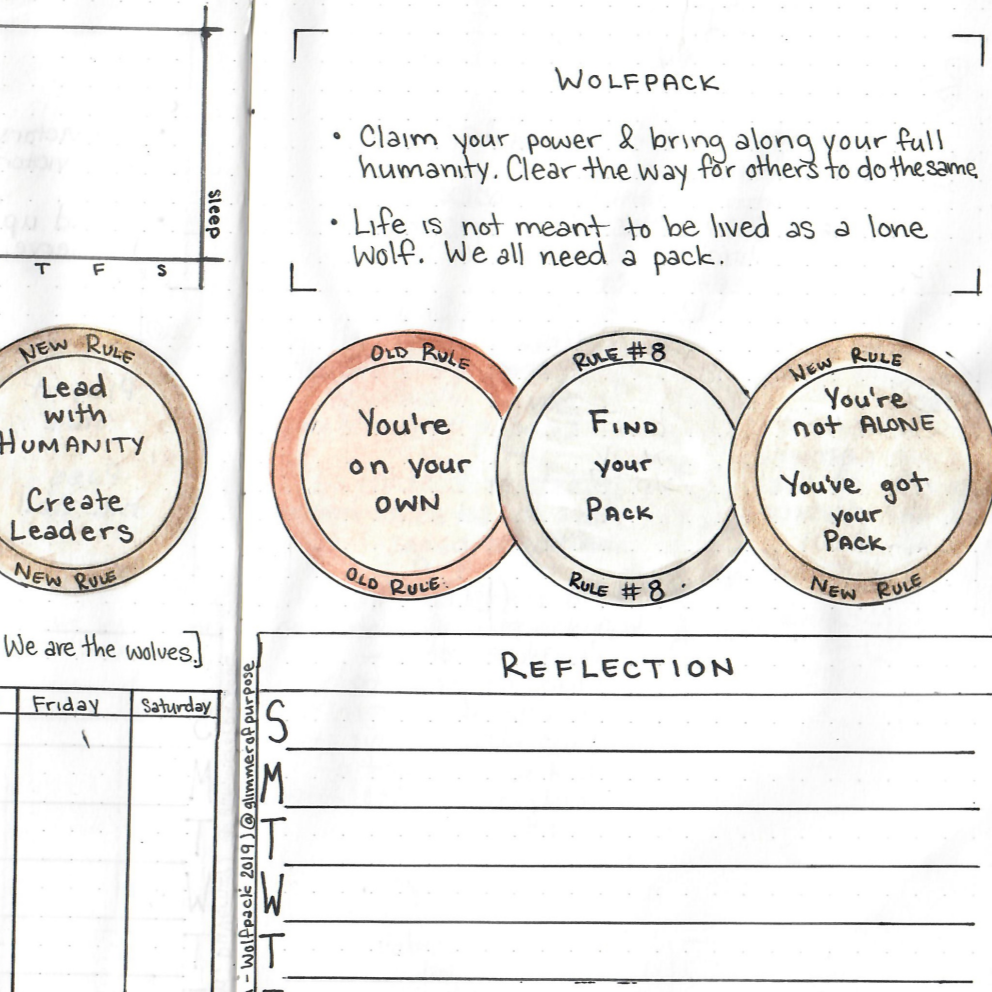 sleep
T F S
NEW RULE
Lead
with
HUMANITY
Create
Leaders
NEW RULE
We are the wolves.]
Friday Saturday
WOLFPACK
• Claim your power & bring along your full
humanity. Clear the way for others to do the same.
• Life is not meant to be lived as a lone
wolf. We all need a pack.
OLD RULE
You're
on your
OWN
OLD RULE
RULE #8
FIND
your
PACK
RULE #8
NEW RULE
You're
not ALONE
You've got
your
PACK
NEW RULE
- Wolfpack 2019) @glimmerofpurpose
REFLECTION
S
M
T
W
T